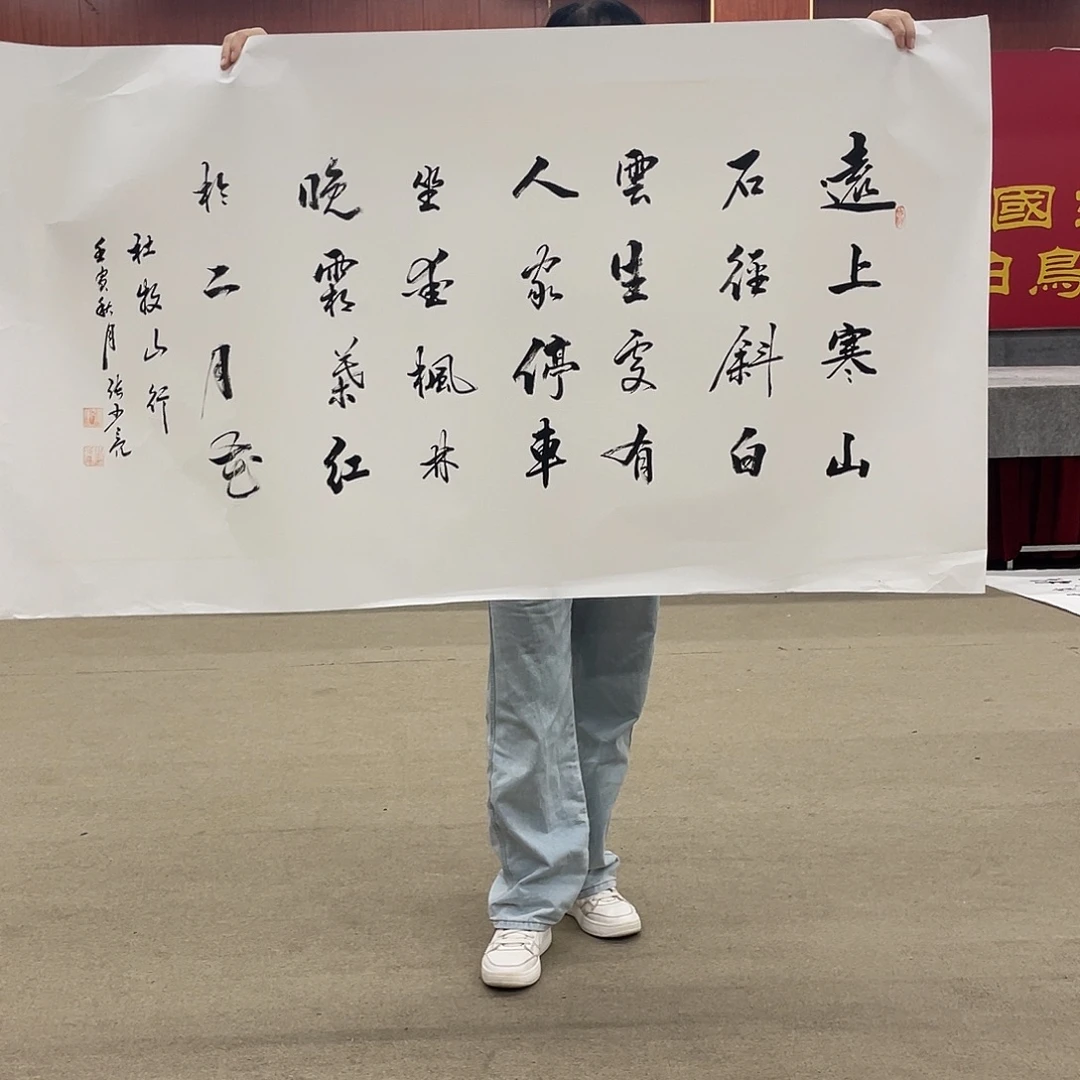 遠上寒山
石徑斜白
雲生處有
人家停車
坐愛楓林
晚霜葉紅
於二月花
杜牧山行
壬寅秋月張少亮
國
白鳥